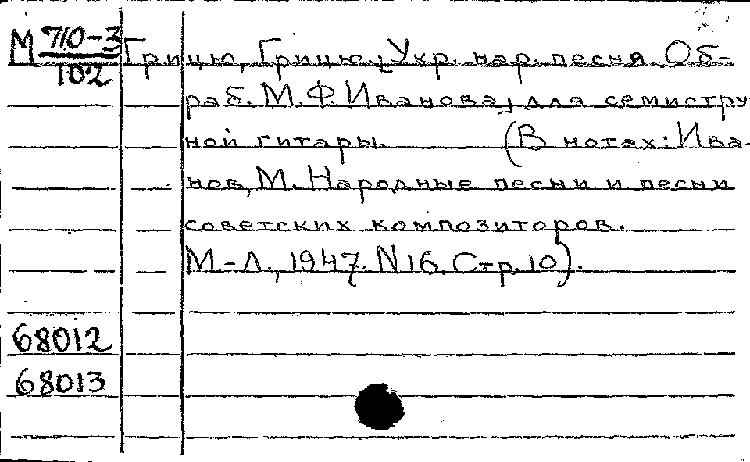 М 710-3
102
Грицю, Грицю. Укр. нар. песня. Об-
раб. М.Ф. Иванова, для семистру-
ной гитары. (В нотах: Ива-
нов, М. Народные песни и песни
советских композиторов.
М.-Л., 1947. N16. Стр. 10).
68012
68013